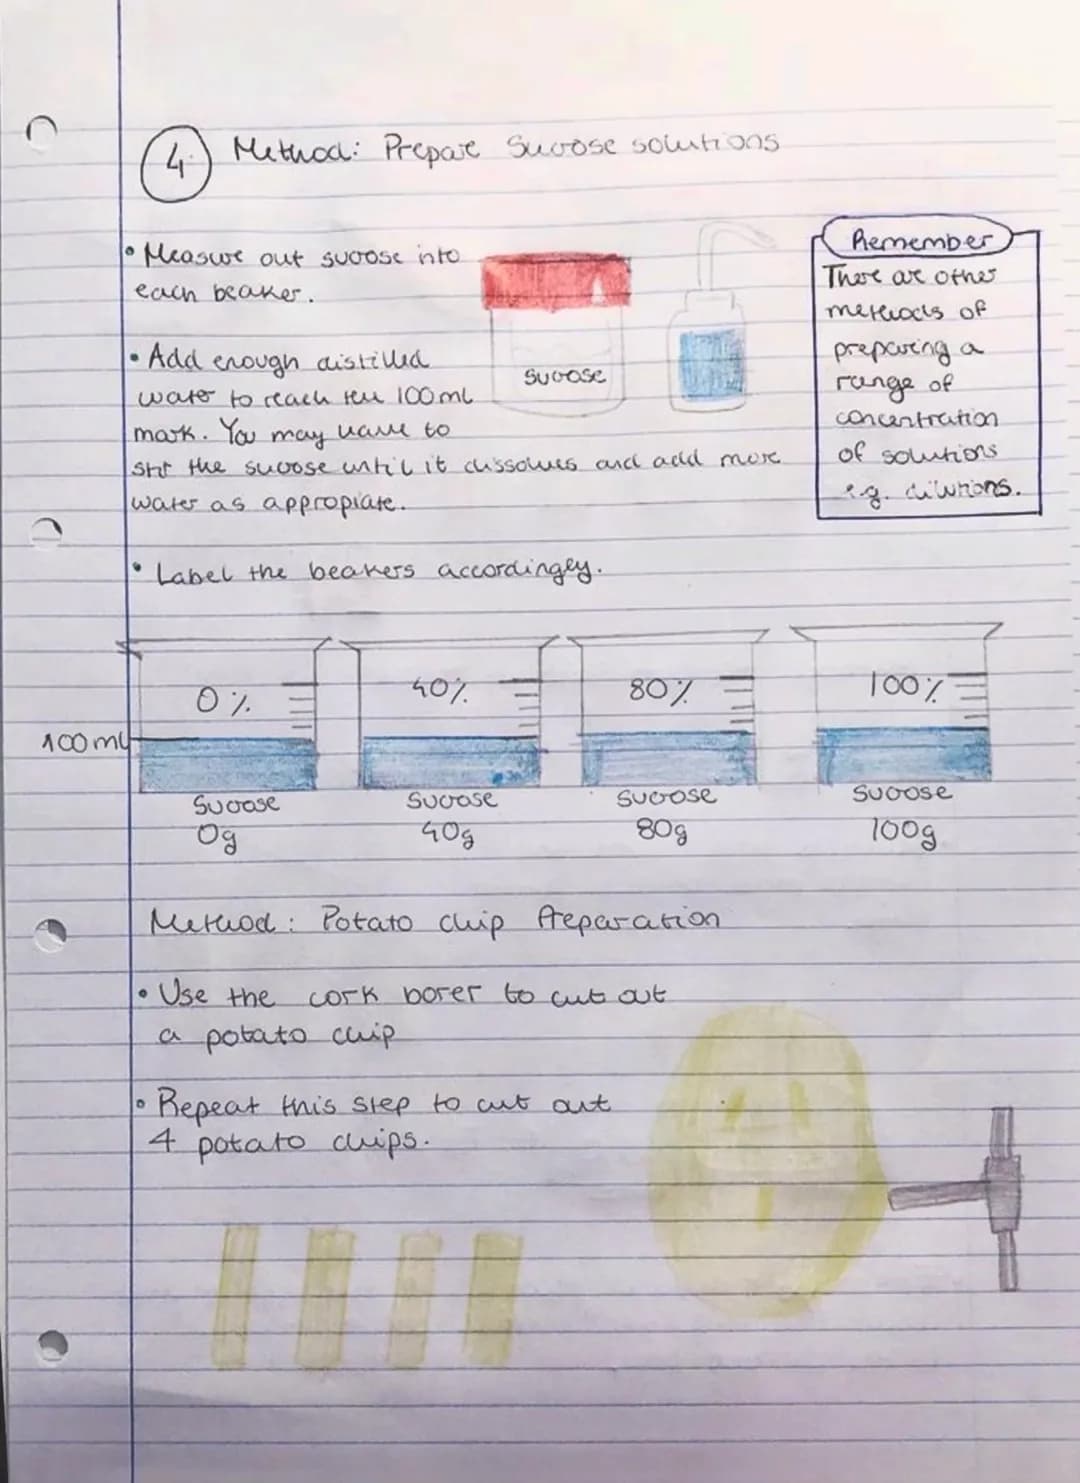 4. Method: Prepare Sucrose solutions
• Measure out sucrose into
each beaker.
• Add enough distilled
water to reach the 100ml
mark. You may have to
stir the sucrose until it dissolves and add more
water as appropiate.
sucrose
Remember
There are other
methods of
preparing a
range of
concentration
of solutions
e.g. dilutions.
• Label the beakers accordingly.
0% 40% 80% 100%
100ml
Sucrose Sucrose Sucrose Sucrose
0g 40g 80g 100g
Method: Potato chip Preparation
• Use the cork borer to cut out
a potato chip
• Repeat this step to cut out
4 potato chips.